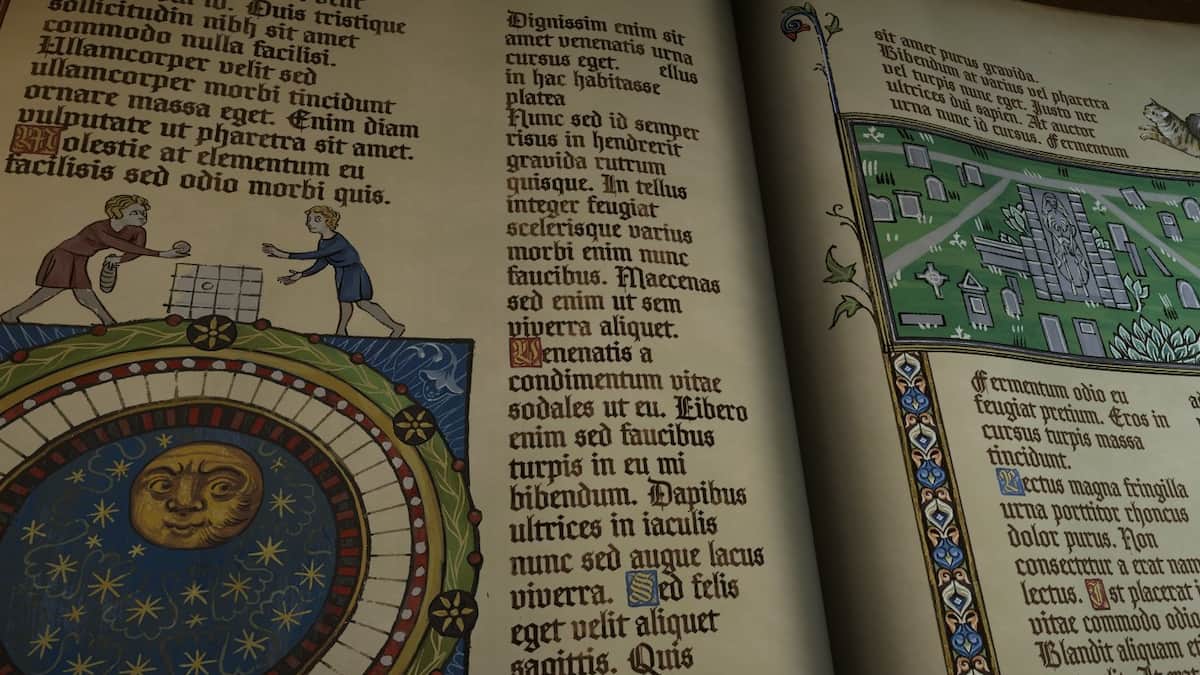 sollicitudin nibh sit amet
commodo nulla facilisi.
Ullamcorper velit sed
ullamcorper morbi tincidunt
ornare massa eget. Enim diam
vulputate ut pharetra sit amet.
Molestie at elementum eu
facilisis sed odio morbi quis.
Dignissim enim sit
amet venenatis urna
cursus eget. ellus
in hac habitasse
platea
Nunc sed id semper
risus in hendrerit
gravida rutrum
quisque. In tellus
integer feugiat
scelerisque varius
morbi enim nunc
faucibus. Maecenas
sed enim ut sem
viverra aliquet.
Venenatis a
condimentum vitae
sodales ut eu. Libero
enim sed faucibus
turpis in eu mi
bibendum. Dapibus
ultrices in iaculis
nunc sed augue lacus
viverra. Sed felis
eget velit aliquet
sagittis. Quis
sit amet purus gravida.
Bibendum at varius vel pharetra
vel turpis nunc eget. Justo nec
ultrices dui sapien. At auctor
urna nunc id cursus. Fermentum
Fermentum odio eu
feugiat pretium. Eros in
cursus turpis massa
tincidunt.
Lectus magna fringilla
urna porttitor rhoncus
dolor purus. Non
consectetur a erat nam
lectus. Ist placerat i
vitae commodo odio
Blandit aliquam et